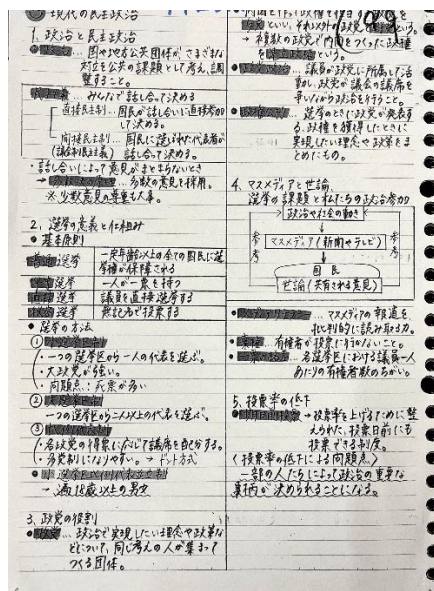 現代の民主政治
1. 政治と民主主義
… 国や地方公共団体が、さまざまな
対立を公共の課題として考え、調
整すること。
… みんなで話し合って決める
直接民主制… 国民が話し合いに直接参加
して決める。
間接民主制… 国民に選ばれた代表者が
(議会制民主主義) 話し合って決める。
・話し合いによって意見がまとまらないとき
→ … 多数の意見を採用。
※少数意見の尊重も大事。
2. 選挙の意義と仕組み
● 基本原則
選挙 一定年齢以上の全ての国民に選
挙権が保障される
選挙 一人が一票を持つ
選挙 議員を直接選挙する
選挙 無記名で投票する
● 選挙の方法
①
・一つの選挙区から一人の代表を選ぶ。
・大政党が強い。
・問題点：死票が多い
②
一つの選挙区から二人以上の代表を選ぶ。
③
・各政党の得票に応じて議席を配分する。
・多党制になりやすい。→ドント方式
→ 満18歳以上の男女
3. 政党の役割
… 政治で実現したい理念や政策な
どについて、同じ考えの人が集まって
つくる団体。
といい、それ以外の政党を という。
→ 複数の政党で内閣をつくった政権
を という。
… 議員が政党に所属して活
動し、政党が議会の議席を
争いながら政治を行うこと。
… 選挙のときに政党が発表す
る、政権を獲得したときに
実現したい理念や政策をま
とめたもの。
4. マスメディアと世論、
選挙の課題と私たちの政治参加
政治や社会の動き
参考
マスメディア(新聞やテレビ)
参考
国民
世論(共有される意見)
… マスメディアの報道を
批判的に読み取る力。
… 有権者が投票に行かないこと。
… 各選挙区における議員一人
あたりの有権者数のちがい。
5. 投票率の低下
→ 投票率を上げるために整
えられた、投票日前にも
投票できる制度。
〈投票率の低下による問題点〉
一部の人たちによって政治の重要な
事柄が決められることになる。